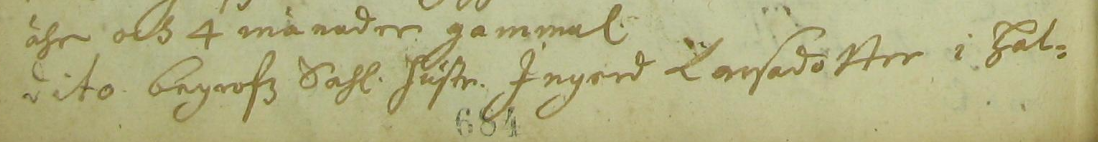 åhr och 4 månader gammal.
dito begrofz Sahl. hustr. Ingerd Larsadotter i Hal=
684